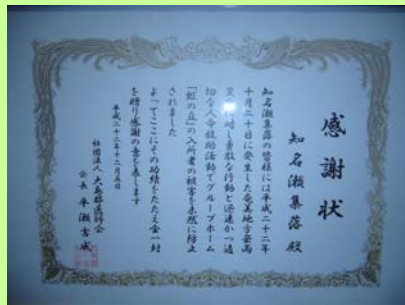 感謝状
知名瀬集落 殿
知名瀬集落の皆様には平成二十二年
十月二十日に発生した奄美地方豪雨
災害に対し勇敢な行動と迅速かつ適
切な人命救助活動でグループホーム
「虹の丘」の入所者の被害を未然に防止
されました
よってここにその功績をたたえ金一封
を贈り感謝の意を表します
平成二十二年十二月五日
社団法人 大島郡医師会
会長